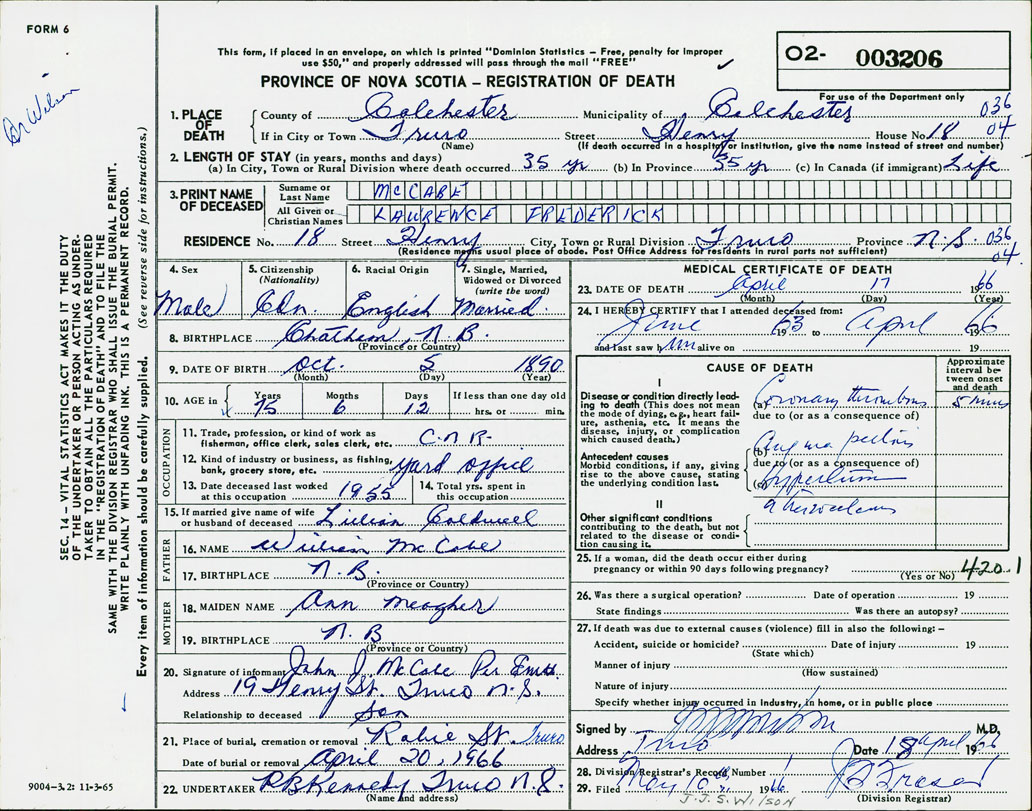 FORM 6
This form, if placed in an envelope, on which is printed "Dominion Statistics – Free, penalty for improper
use $50," and properly addressed will pass through the mail "FREE"
O2- 003206
PROVINCE OF NOVA SCOTIA – REGISTRATION OF DEATH
For use of the Department only
Dr Wilson
1. PLACE OF DEATH County of Colchester Municipality of Colchester 036
If in City or Town Truro Street Henry House No 18 04
(Name) (If death occurred in a hospital or institution, give the name instead of street and number)
2. LENGTH OF STAY (in years, months and days)
(a) In City, Town or Rural Division where death occurred 35 yr (b) In Province 35 yr (c) In Canada (if immigrant) Life
3. PRINT NAME OF DECEASED Surname or Last Name McCABE
All Given or Christian Names LAWRENCE FREDERICK
RESIDENCE No. 18 Street Henry City, Town or Rural Division Truro Province N.S. 036
(Residence means usual place of abode. Post Office Address for residents in rural parts not sufficient) 04.
4. Sex 5. Citizenship (Nationality) 6. Racial Origin 7. Single, Married, Widowed or Divorced (write the word)
Male Cdn. English Married.
8. BIRTHPLACE Chathem, N.B.
(Province or Country)
9. DATE OF BIRTH Oct. 5 1890
(Month) (Day) (Year)
10. AGE in Years Months Days If less than one day old
75 6 12 hrs. or min.
OCCUPATION
11. Trade, profession, or kind of work as
fisherman, office clerk, sales clerk, etc. C.N.R.
12. Kind of industry or business, as fishing,
bank, grocery store, etc. yard office
13. Date deceased last worked at this occupation 1955 14. Total yrs. spent in this occupation
15. If married give name of wife
or husband of deceased Lilian Caldwell
FATHER
16. NAME William McCabe
17. BIRTHPLACE N.B.
(Province or Country)
MOTHER
18. MAIDEN NAME Ann Meagher
19. BIRTHPLACE N.B
(Province or Country)
20. Signature of informant John J. McCabe Per
Address 19 Henry St. Truro N.S.
Relationship to deceased Son
21. Place of burial, cremation or removal Robie St. Truro
Date of burial or removal April 20, 1966
22. UNDERTAKER RB Kennedy Truro N.S.
(Name and address)
MEDICAL CERTIFICATE OF DEATH
23. DATE OF DEATH April 17 1966
(Month) (Day) (Year)
24. I HEREBY CERTIFY that I attended deceased from:
June 1963 to April 1966
and last saw him alive on 19
CAUSE OF DEATH
Approximate interval between onset and death
I
Disease or condition directly leading to death (This does not
the mode of dying, e.g., heart failure, asthenia, etc. It means the
disease, injury, or complication
which caused death.)
(a) Coronary thrombosis 5 mins
due to (or as a consequence of)
Antecedent causes
Morbid conditions, if any, giving
rise to the above cause, stating
the underlying condition last.
(b) Angina pectoris
due to (or as a consequence of)
(c)
II
Other significant conditions
contributing to the death, but not
related to the disease or condition causing it.
25. If a woman, did the death occur either during
pregnancy or within 90 days following pregnancy? 420.1
(Yes or No)
26. Was there a surgical operation? Date of operation 19
State findings Was there an autopsy?
27. If death was due to external causes (violence) fill in also the following: –
Accident, suicide or homicide? Date of injury 19
(State which)
Manner of injury
(How sustained)
Nature of injury
Specify whether injury occurred in industry, in home, or in public place
Signed by M.D.
Address Truro Date 18 April 1966
28. Division Registrar's Record Number
29. Filed May 10 1966
(Division Registrar)
J.J.S. WILSON
SEC. 14 – VITAL STATISTICS ACT MAKES IT THE DUTY
OF THE UNDERTAKER OR PERSON ACTING AS UNDERTAKER
TO OBTAIN ALL THE PARTICULARS REQUIRED
IN THE "REGISTRATION OF DEATH" AND TO FILE THE
SAME WITH THE DIVISION REGISTRAR WHO SHALL ISSUE THE BURIAL PERMIT.
WRITE PLAINLY WITH UNFADING INK. THIS IS A PERMANENT RECORD.
Every item of information should be carefully supplied. (See reverse side for instructions.)
9004–3.2: 11-3-65